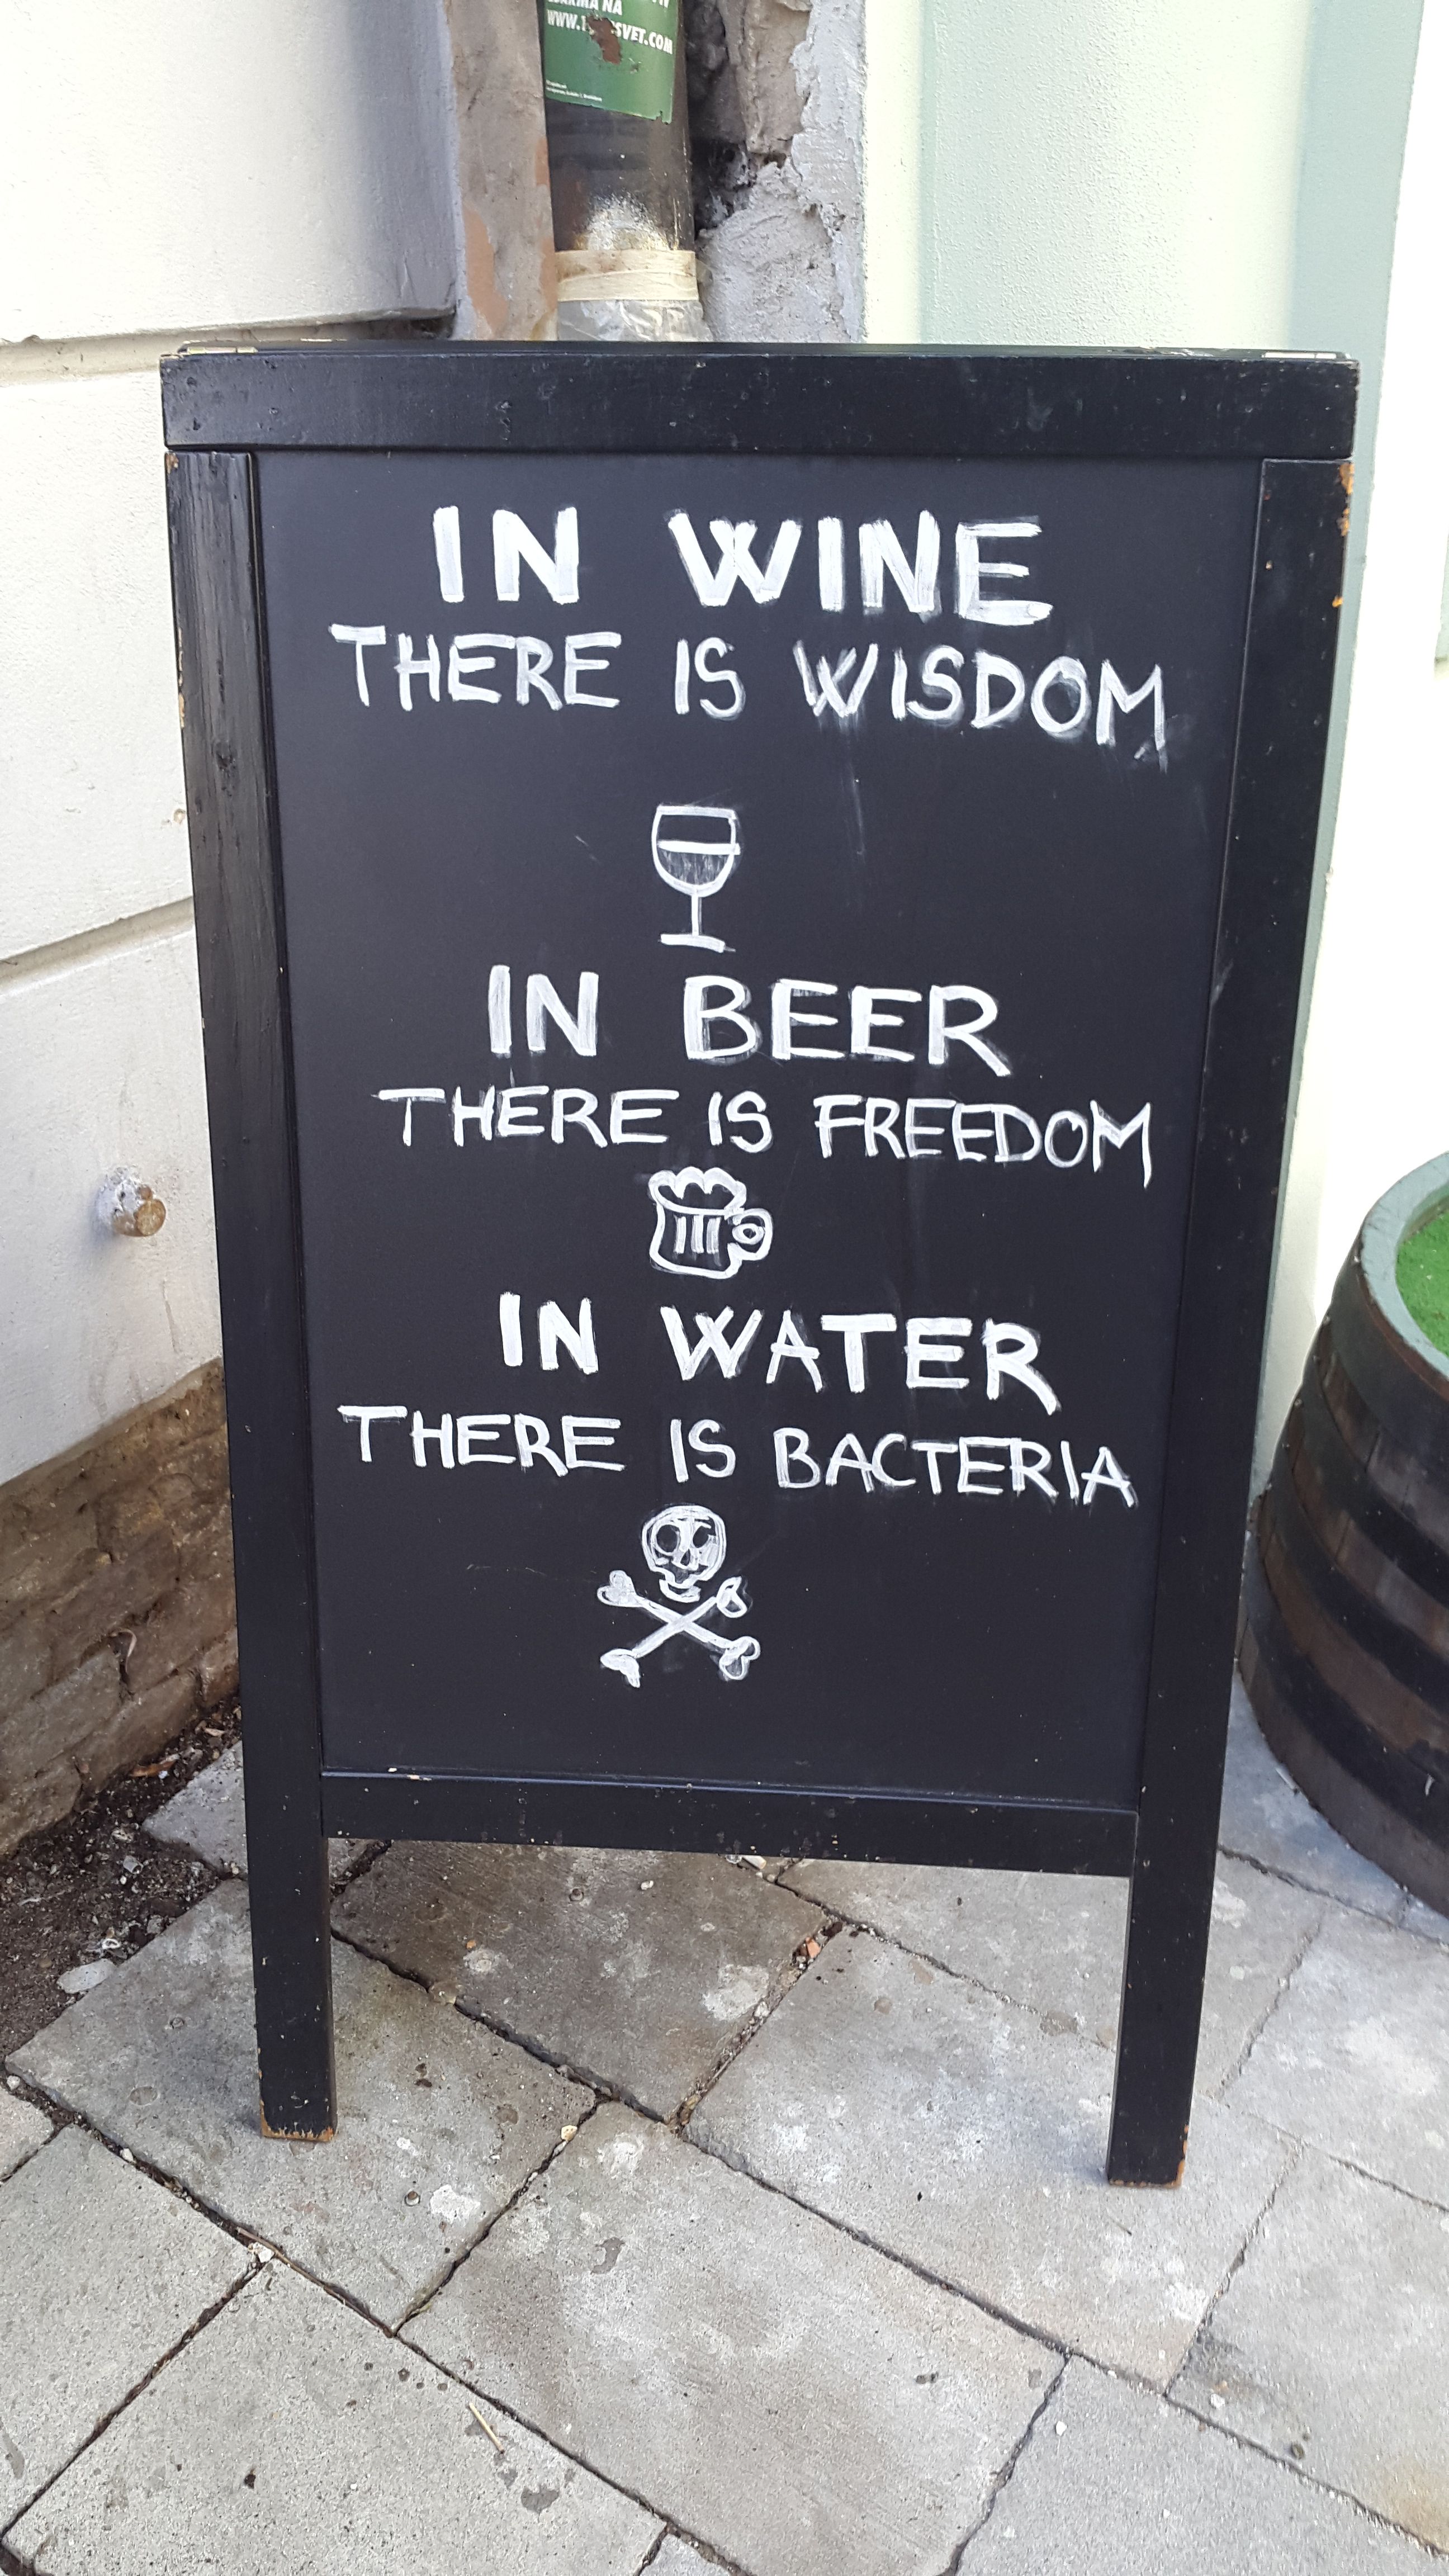 NA
IN WINE
THERE IS WISDOM
IN BEER
THERE IS FREEDOM
IN WATER
THERE IS BACTERIA